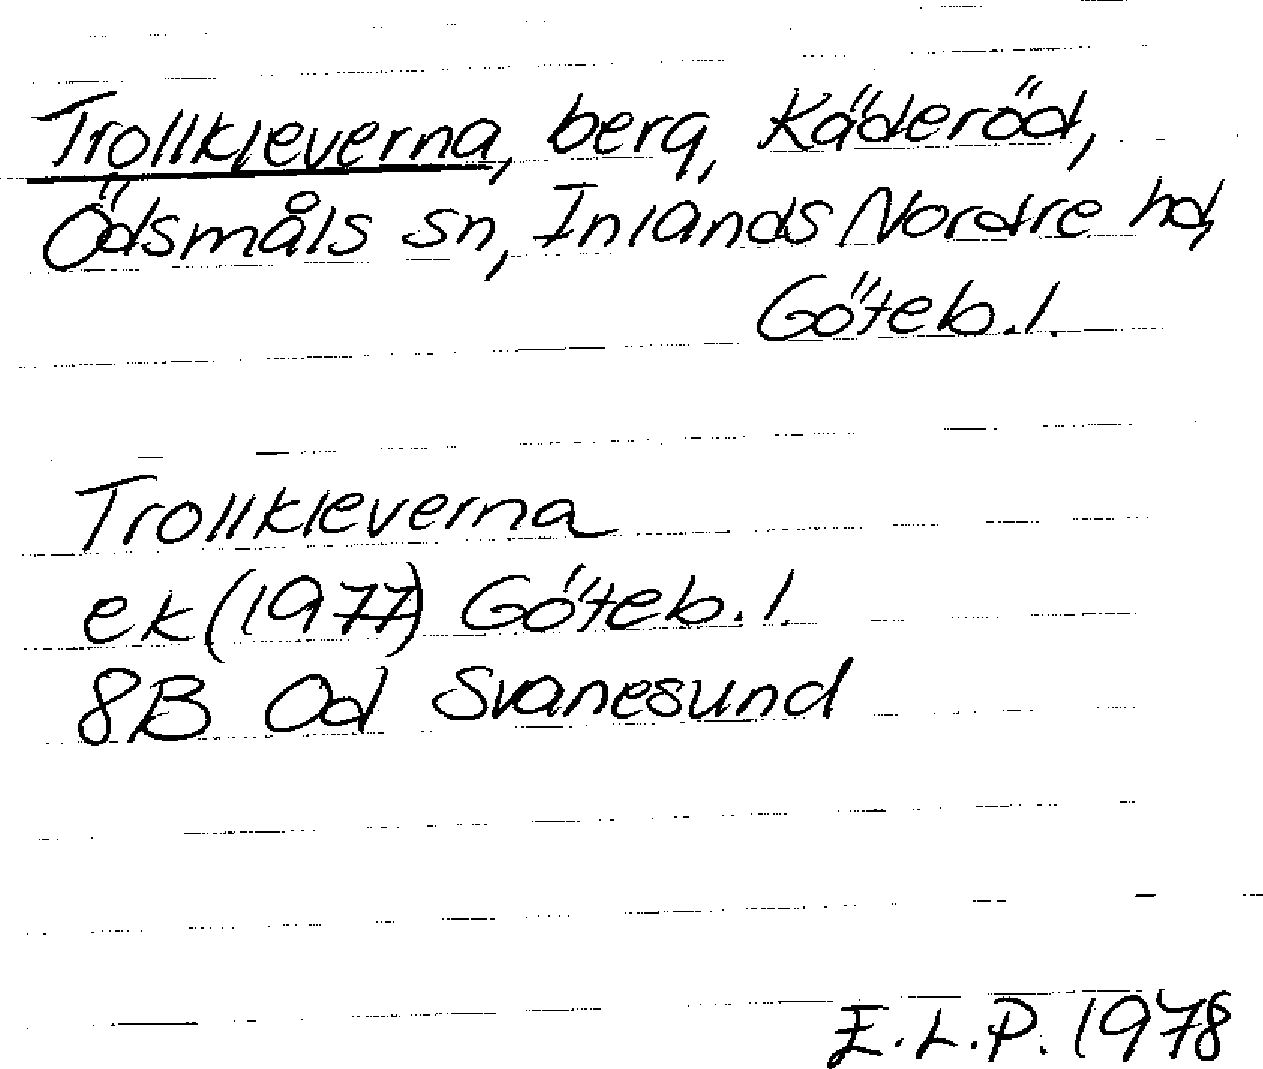 Trollkleverna, berg, Käderöd,
Ödsmåls sn, Inlands Nordre hd,
Göteb.l.
Trollkleverna
ek (1977) Göteb.l.
8B Od Svanesund
E.L.P. 1978